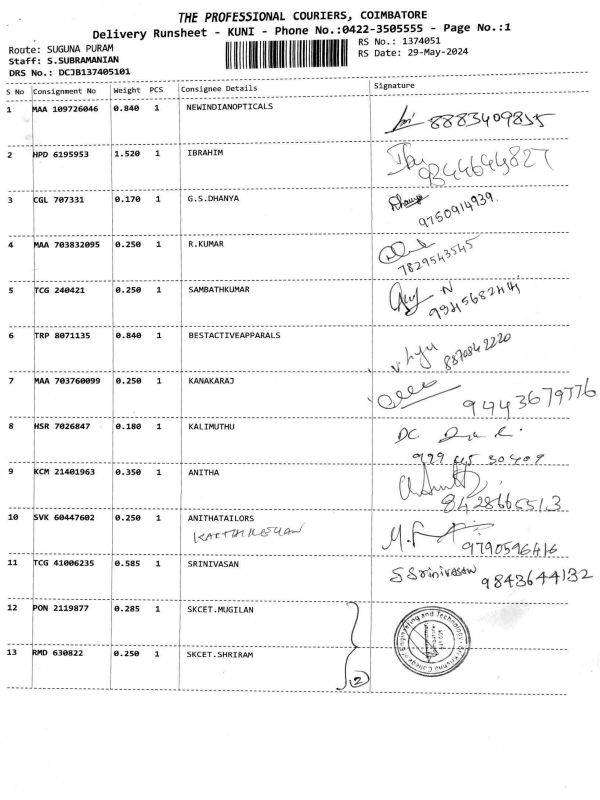 THE PROFESSIONAL COURIERS, COIMBATORE
Delivery Runsheet - KUNI - Phone No.:0422-3505555 - Page No.:1
Route: SUGUNA PURAM RS No.: 1374051
Staff: S.SUBRAMANIAN RS Date: 29-May-2024
DRS No.: DCJB137405101
S No Consignment No Weight PCS Consignee Details Signature
1 MAA 109726046 0.840 1 NEWINDIANOPTICALS 8883409855
2 HPD 6195953 1.520 1 IBRAHIM 9844644827
3 CGL 707331 0.170 1 G.S.DHANYA Dhanya 9750914939.
4 MAA 703832095 0.250 1 R.KUMAR 7829543545
5 TCG 240421 0.250 1 SAMBATHKUMAR
6 TRP 8071135 0.840 1 BESTACTIVEAPPARALS 8870842220
7 MAA 703760099 0.250 1 KANAKARAJ 9443679776
8 HSR 7026847 0.180 1 KALIMUTHU DC
9 KCM 21401963 0.350 1 ANITHA 8428665513
10 SVK 60447602 0.250 1 ANITHATAILORS 9790596416
KARTHIKEYAN
11 TCG 41006235 0.585 1 SRINIVASAN S SriNiVASAN 9843644132
12 PON 2119877 0.285 1 SKCET.MUGILAN
13 RMD 630822 0.250 1 SKCET.SHRIRAM
2